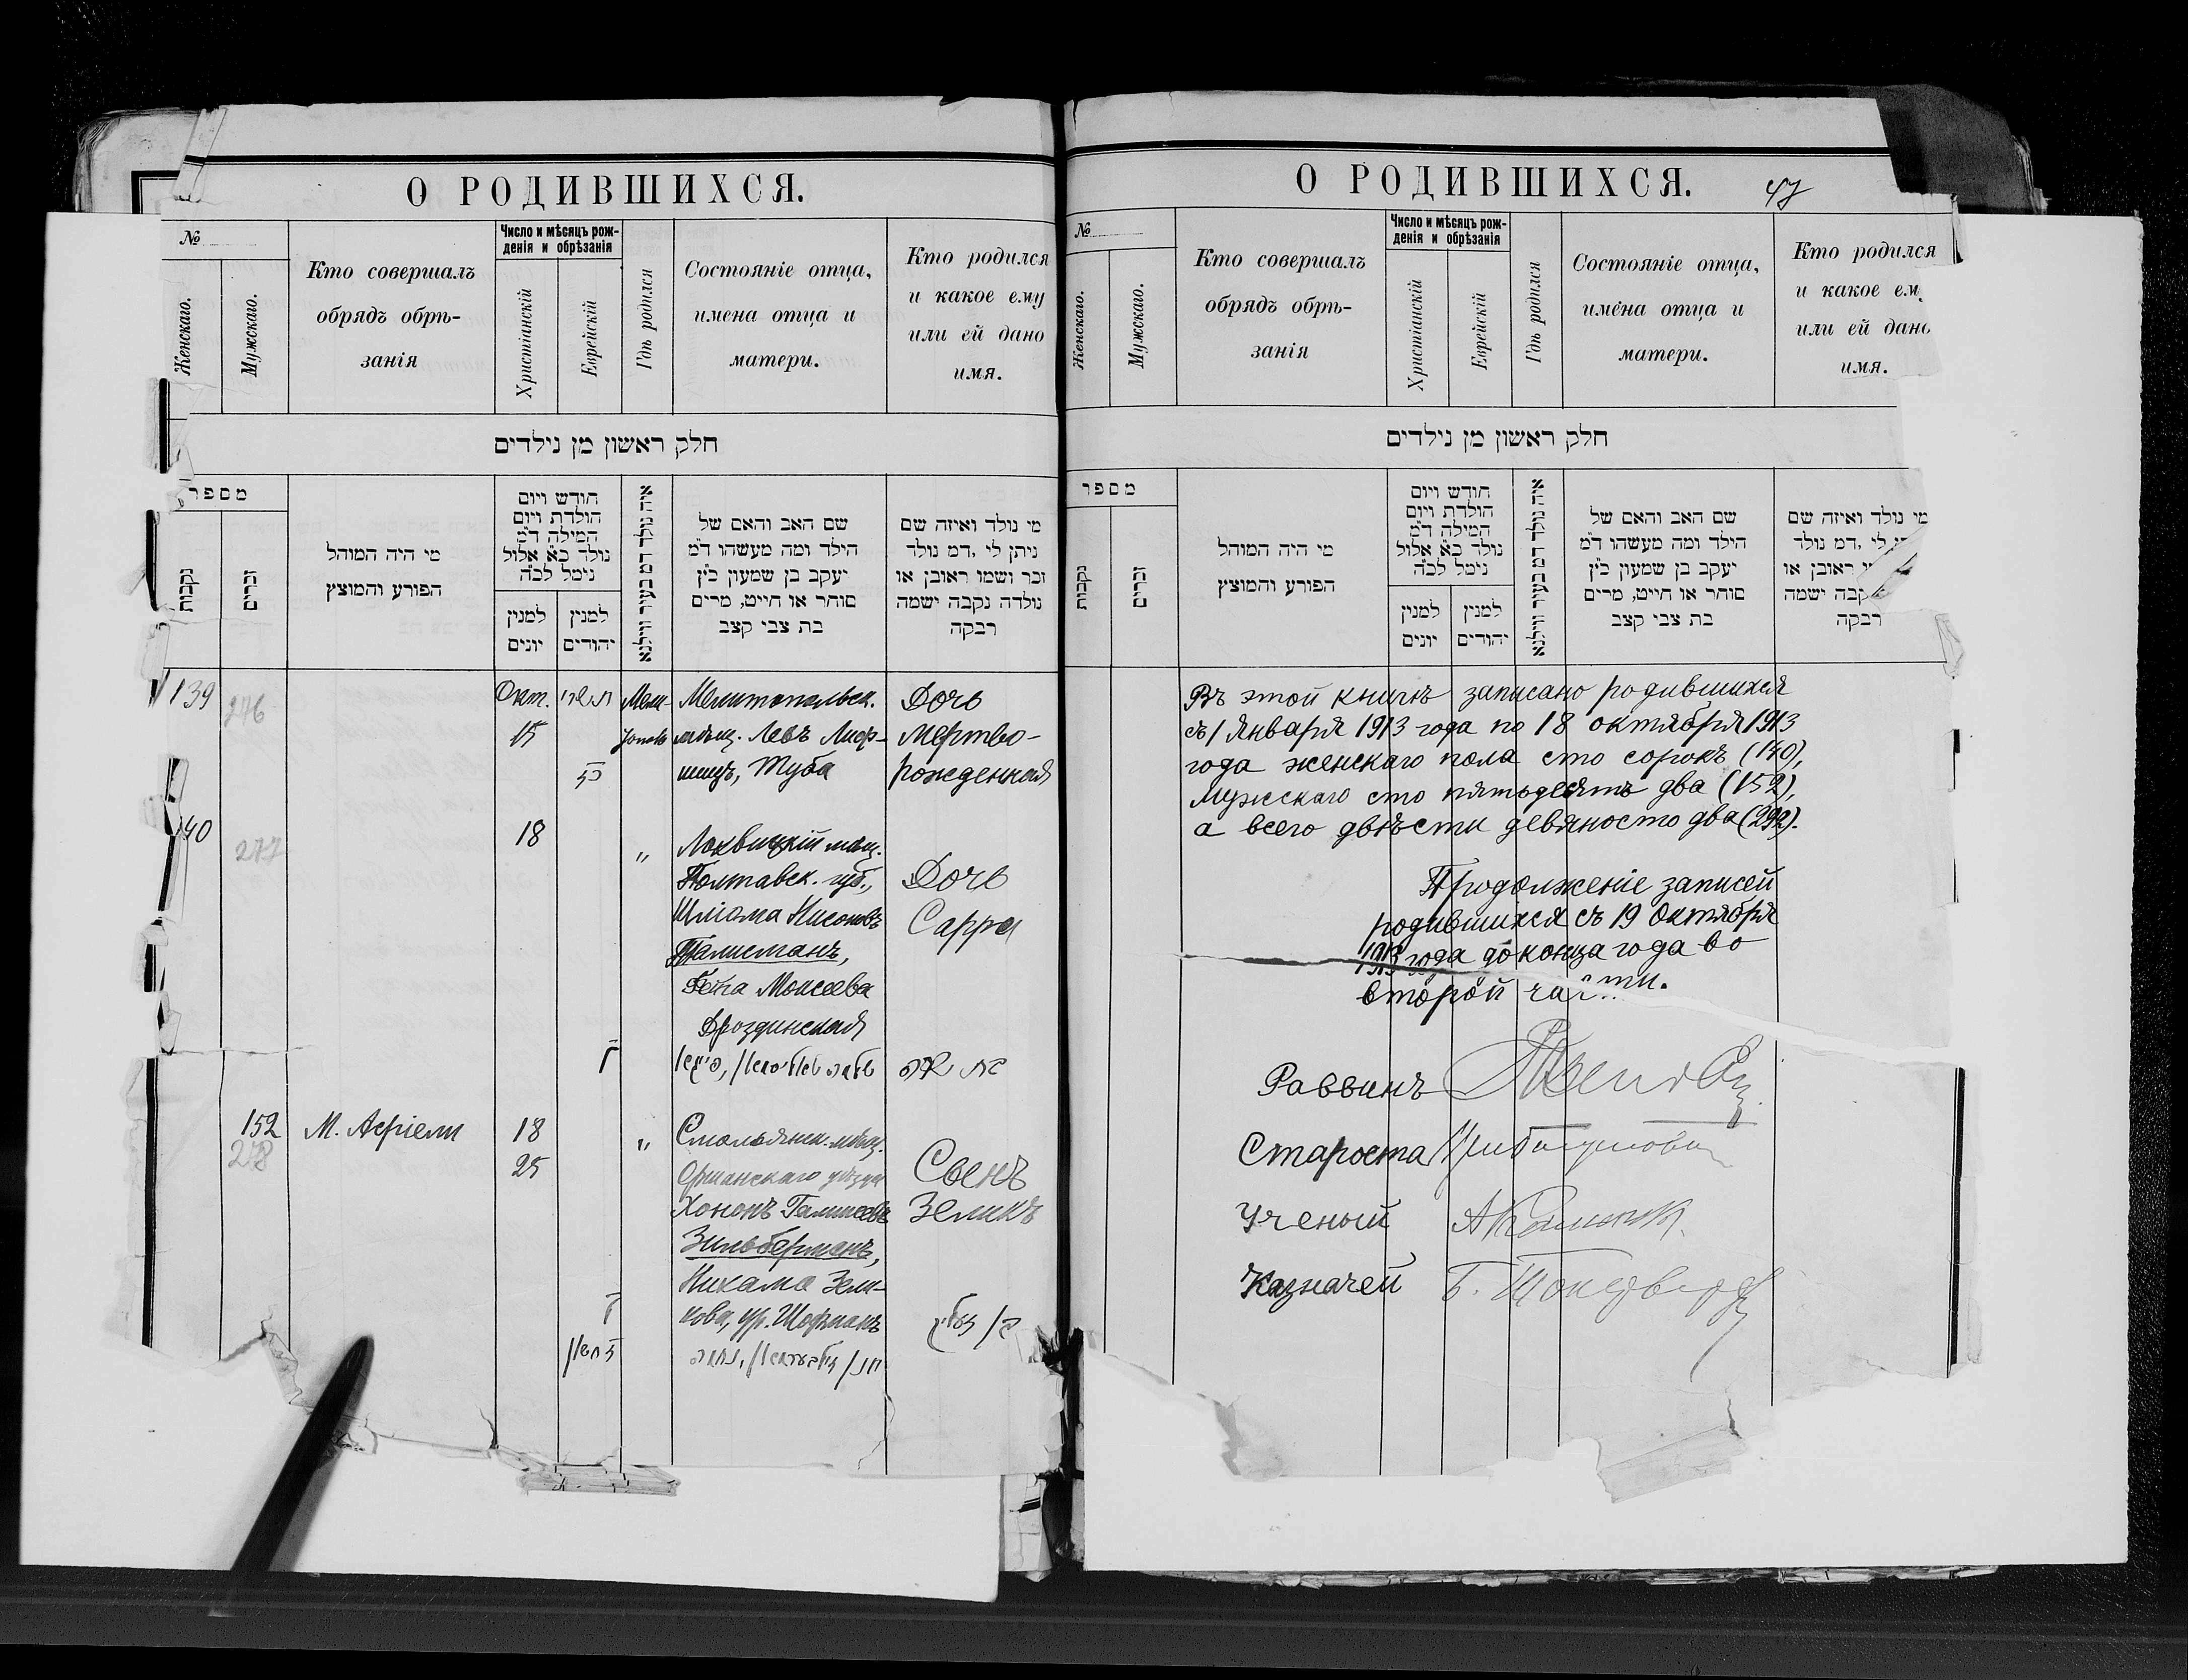 О РОДИВШИХСЯ.
№
Женскаго.
Мужскаго.
Кто совершалъ
обрядъ обрѣ-
занія
Число и мѣсяцъ рож-
денія и обрѣзанія
Христіанскій
Еврейскій
Гдѣ родился
Состояніе отца,
имена отца и
матери.
Кто родился
и какое ему
или ей дано
имя.
חלק ראשון מן נילדים
מספר
נקבות
זכרים
מי היה המוהל
הפורע והמוצץ
חודש ויום
הולדת ויום
המילה ד״מ
נולד כ״א אלול
נימל לכ״ה
למנין
יונים
למנין
יהודים
איה נולד דמ בעיר ווילנא
שם האב והאם של
הילד ומה מעשהו ד״מ
יעקב בן שמעון כ״ץ
סוחר או חייט, מרים
בת צבי קצב
מי נולד ואיזה שם
ניתן לי ,דמ נולד
זכר ושמו ראובן או
נולדה נקבה ישמה
רבקה
139
276
Окт.
15
תשרי
כז
Мели-
тополь
Мелитопольск.
мѣщ. Левъ Лиф-
шицъ, Туба
Дочь
Мертво-
рожденная
140
277
18
"
Лохвицкій мѣщ.
Полтавск. губ.,
Шліома Нисоновъ
Талисманъ,
Бейла Моисеева
Дроздинская
Дочь
Сарра
בת שרה
152
278
М. Асріели
18
25
"
Смольянск. мѣщ.
Оршанскаго уѣзда
Хононъ
Зильберманъ,
Нихама Зели-
кова, ур. Шофманъ
Сынъ
Зеликъ
ז חשון
חנן זילבערמאן, נחמה
בן זעליג
О РОДИВШИХСЯ.
47
№
Женскаго.
Мужскаго.
Кто совершалъ
обрядъ обрѣ-
занія
Число и мѣсяцъ рож-
денія и обрѣзанія
Христіанскій
Еврейскій
Гдѣ родился
Состояніе отца,
имена отца и
матери.
Кто родился
и какое ем
или ей дано
имя.
חלק ראשון מן נילדים
מספר
נקבות
זכרים
מי היה המוהל
הפורע והמוצץ
חודש ויום
הולדת ויום
המילה ד״מ
נולד כ״א אלול
נימל לכ״ה
למנין
יונים
למנין
יהודים
איה נולד דמ בעיר ווילנא
שם האב והאם של
הילד ומה מעשהו ד״מ
יעקב בן שמעון כ״ץ
סוחר או חייט, מרים
בת צבי קצב
מי נולד ואיזה שם
לי ,דמ נולד
ראובן או
קבה ישמה
רבקה
Въ этой книгѣ записано родившихся
съ 1 Января 1913 года по 18 октября 1913
года женскаго пола сто сорокъ (140),
мужскаго сто пятьдесятъ два (152),
а всего двѣсти девяносто два (292).
Продолженіе записей
родившихся съ 19 Октября
1913 года до конца года во
второй части.
Раввинъ
Староста
Ученый
Казначей